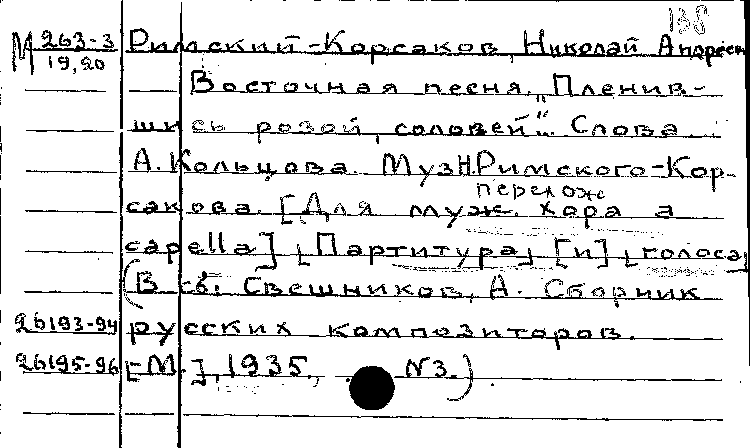 138
М 263-3 Римский-Корсаков, Николай Андреев
19,20
Восточная песня „Пленив-
шись розой, соловей“. Слова
А. Кольцова. Муз Н.Римского-Кор-
перелож
сакова. [Для муж. хора a
capella] [Партитура] [и] [голоса]
(В сб. Свешников, А. Сборник
26193-94 русских композиторов.
26195-96 [-М.], 1935, N3.)